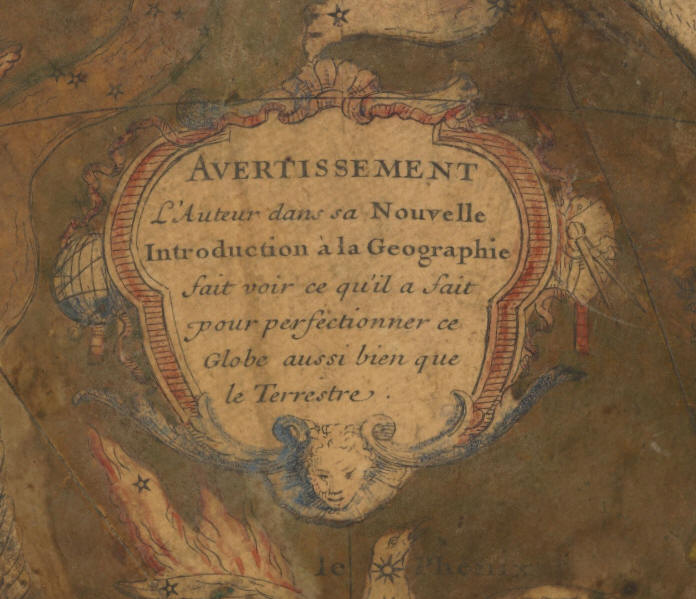 AVERTISSEMENT
L'Auteur dans sa Nouvelle
Introduction à la Geographie
fait voir ce qu'il a fait
pour perfectionner ce
Globe aussi bien que
le Terrestre.
le Phenix